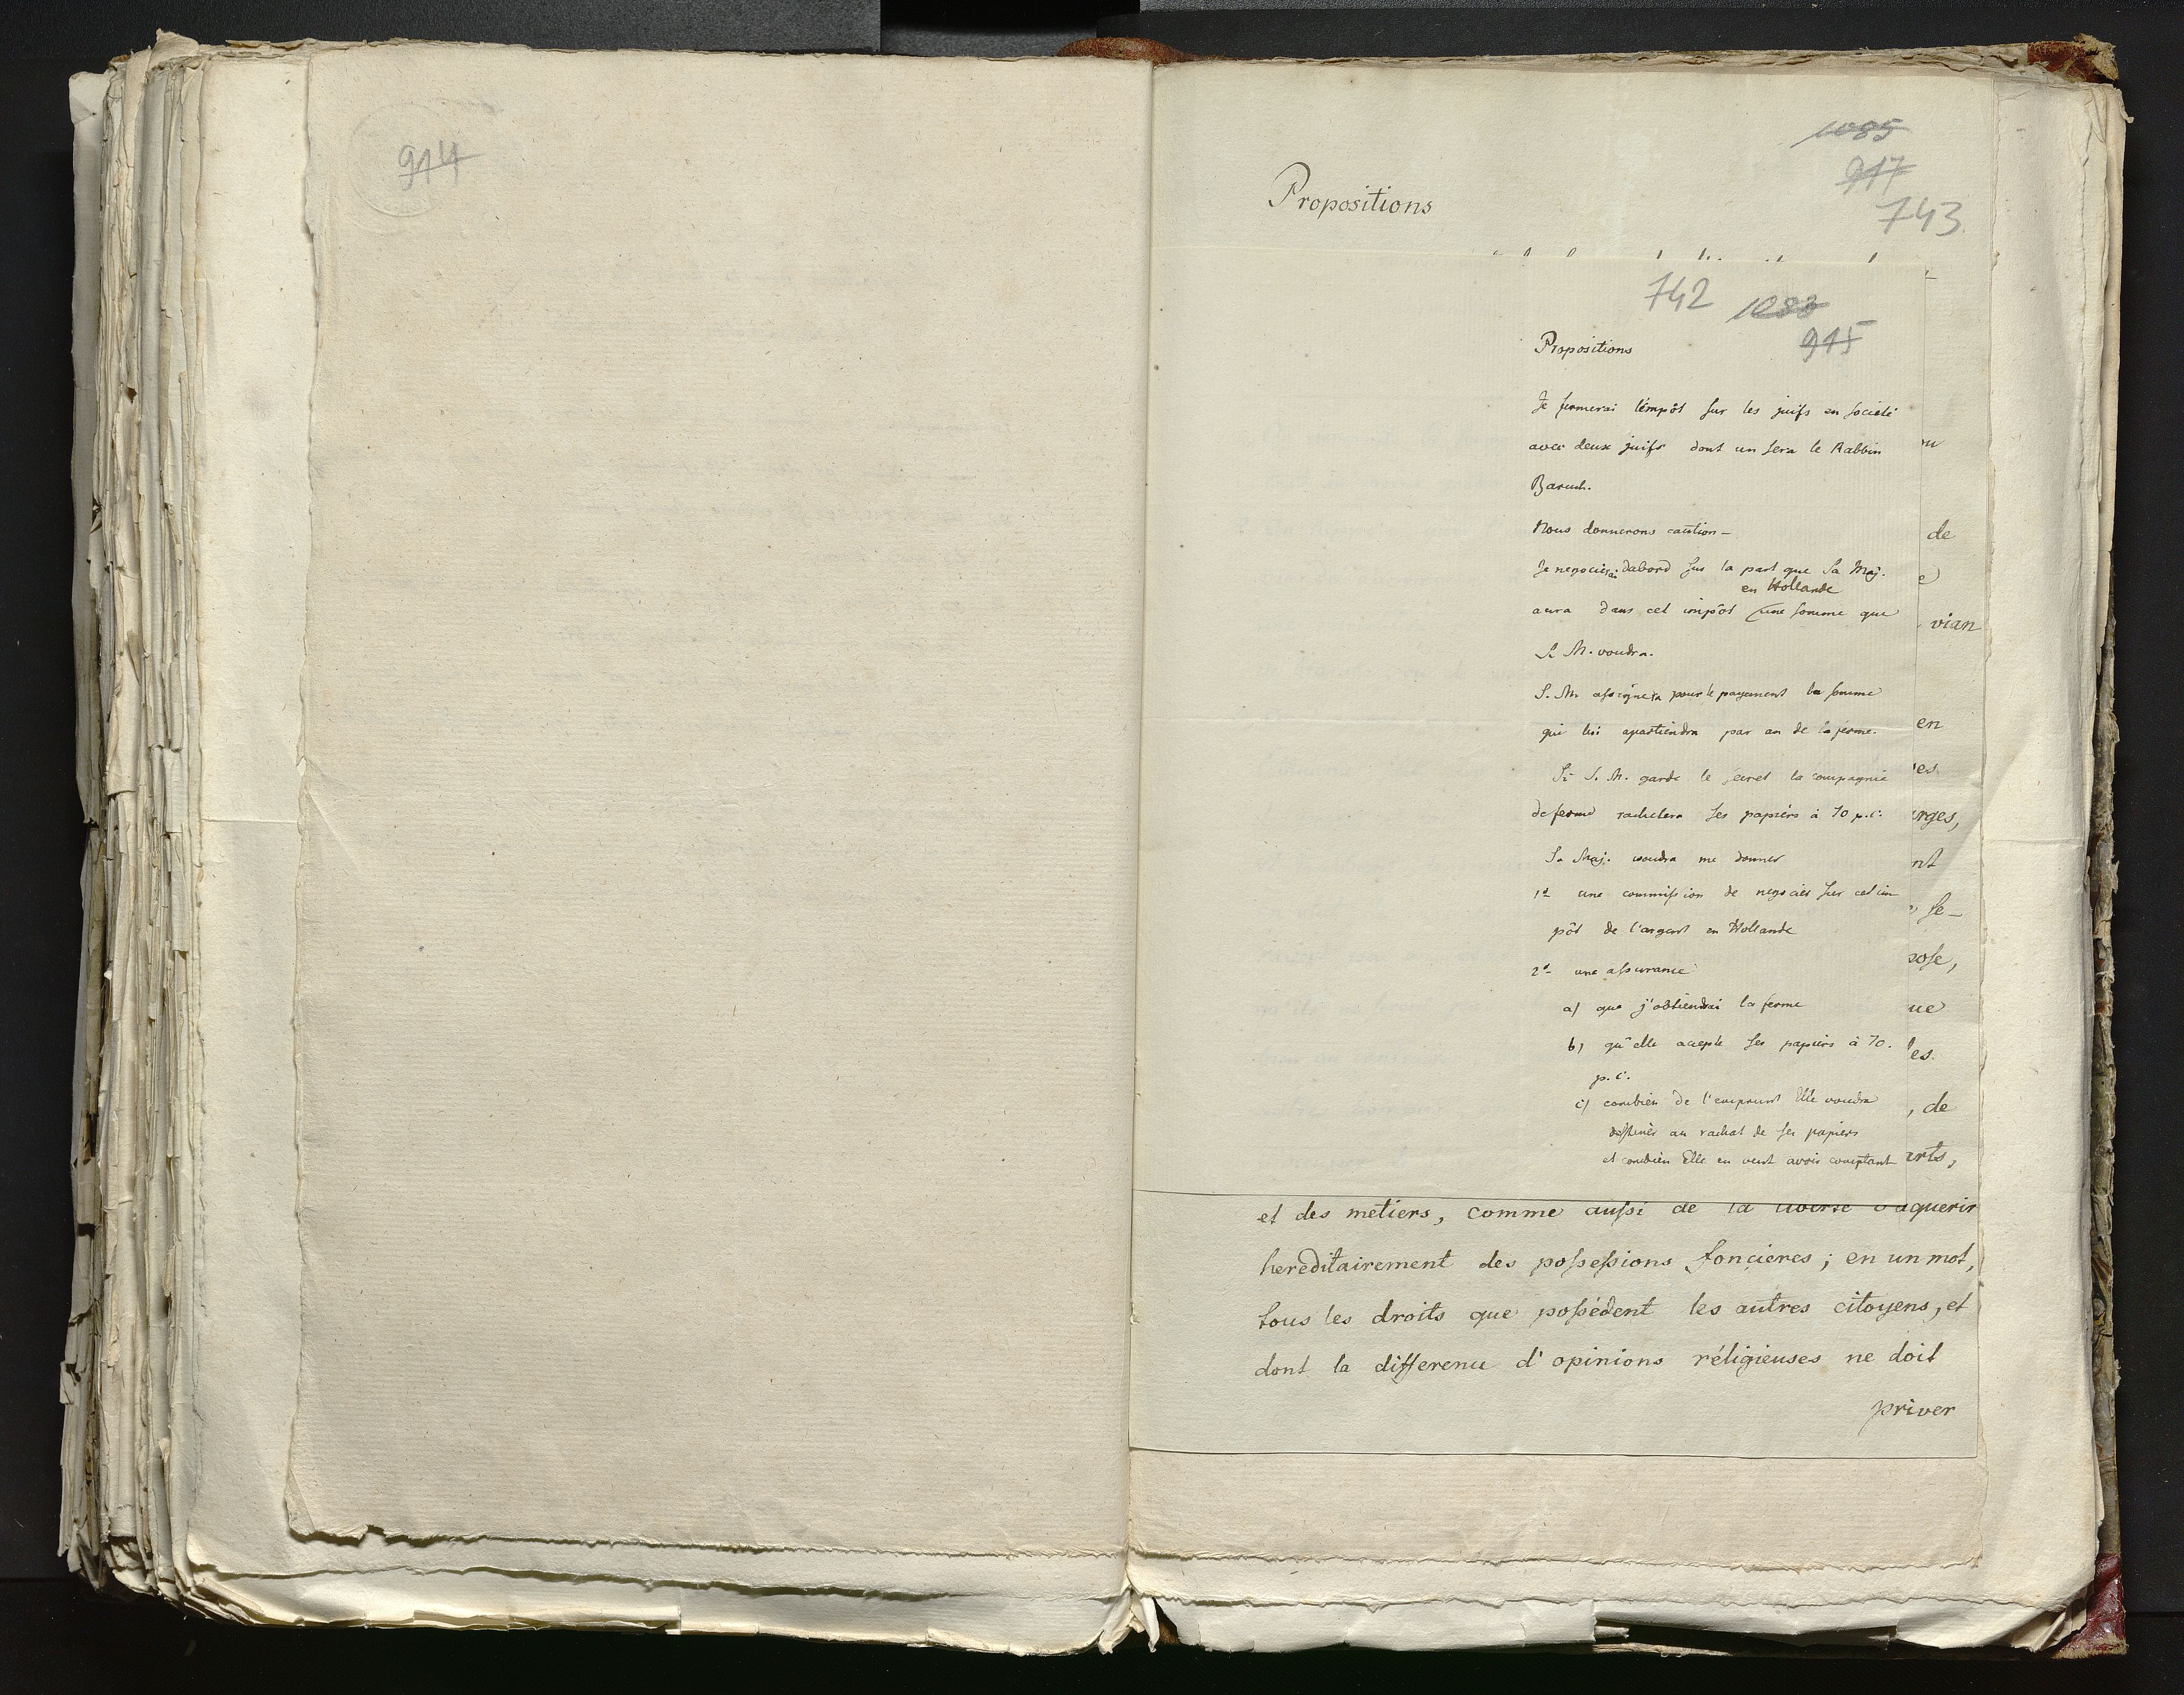 914
1085
917
743
Propositions
742 1083
915
Propositions
Je fermerai l'empôt sur les juifs en societé
avec deux juifs dont un sera le Rabbin
Baruch.
Nous donnerons caution –
Je negocierai d'abord sur la part que Sa Maj.
en Hollande
aura dans cet impôt une somme que
S. M. voudra.
S. M. assignera pour le payement la somme
qui lui apartiendra par an de la ferme.
Si S. M. garde le secret la compagnie
de ferme rachetera ses papiers à 70 p. c.
Sa Maj. voudra me donner
1º une commission de negocier sur cet im
pôt de l'argent en Hollande
2º une assurance
a) que j'obtiendrai la ferme
b) qu'elle accepte ses papiers à 70.
p. c.
c) combien de l'emprunt Elle voudra
destiner au rachat de ses papiers
et combien Elle en veut avoir comptant
de
vian
en
es
rges,
nt
se–
pose,
ue
les
, de
arts,
et des metiers, comme aussi de la liberté d'aquerir
hereditairement des possessions foncieres; en un mot,
tous les droits que possédent les autres citoyens, et
dont la difference d'opinions réligieuses ne doit
priver